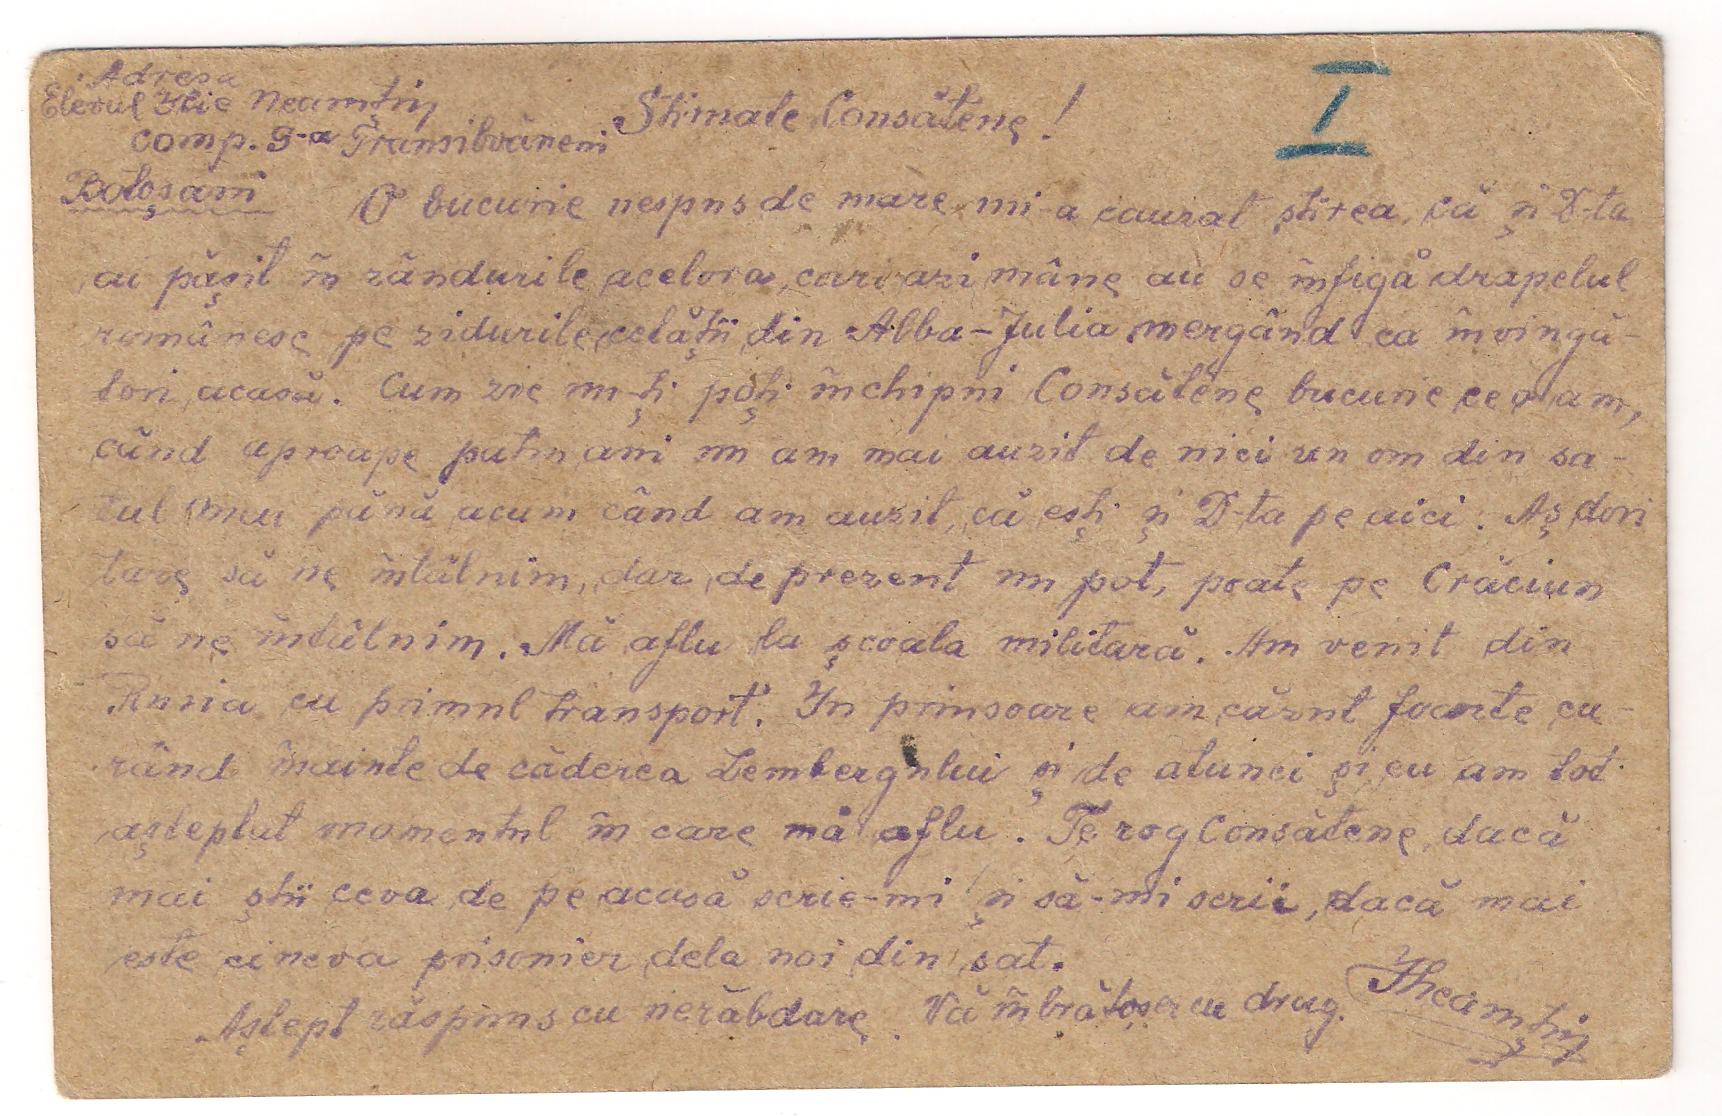 Adresa
Elevul Ilie Neamțiu
comp. 3-a Transilvăneni
Botoșani
Stimate Consătene!
I
O bucurie nespus de mare mi-a cauzat știrea, că și D-ta
ai pășit în rândurile acelora, cari azi mâne au se înfigă drapelul
românesc pe zidurile cetății din Alba-Julia mergând ca învingă-
tori acasă. Cum zic nu-ți poți închipui Consătene bucurie ce o am,
când aproape patru ani nu am mai auzit de nici un om din sa-
tul până acum când am auzit, că ești și D-ta pe aici. Aș dori
tare să ne întâlnim, dar de prezent nu pot, poate pe Crăciun
să ne întâlnim. Mă aflu la școala militară. Am venit din
Rusia cu primul transport. In prinsoare am căzut foarte cu-
rând înainte de căderea Lembergului și de atunci și eu am tot
așteptat momentul în care mă aflu. Te rog Consătene, dacă
mai știi ceva de pe acasă scrie-mi și să-mi scrii, dacă mai
este cineva prisonier dela noi din sat.
Aștept răspuns cu nerăbdare. Vă îmbrățoșez cu drag. INeamțiu